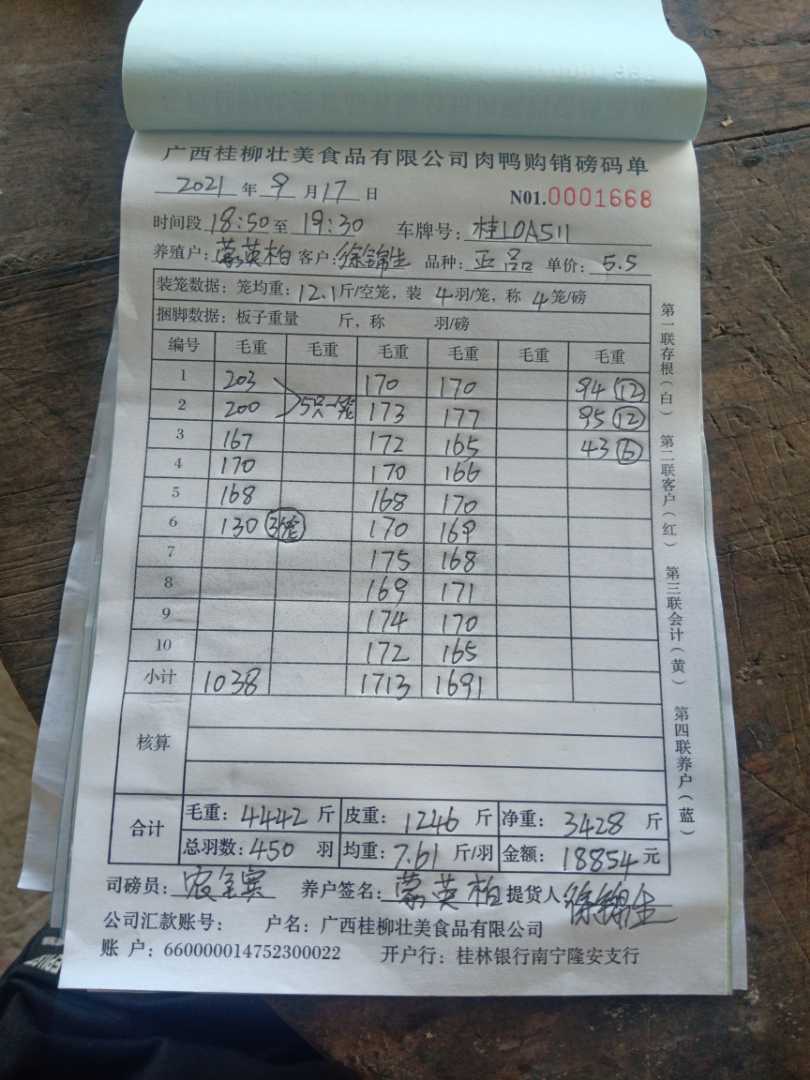 广西桂柳壮美食品有限公司肉鸭购销磅码单
2021 年 9 月 17 日 N01.0001668
时间段 18:50 至 19:30 车牌号: 桂10A511
养殖户: 蒙英柏 客户: 徐锦生 品种: 正品 单价: 5.5
装笼数据: 笼均重: 12.1 斤/空笼, 装 4 羽/笼, 称 4 笼/磅
捆脚数据: 板子重量 斤, 称 羽/磅
编号 毛重 毛重 毛重 毛重 毛重 毛重
1 203 170 170 94 (12)
2 200 5只一笼 173 177 95 (12)
3 167 172 165 43 (6)
4 170 170 166
5 168 168 170
6 130 (3笼) 170 169
7 175 168
8 169 171
9 174 170
10 172 165
小计 1038 1713 1691
核算
合计 毛重: 4442 斤 皮重: 1246 斤 净重: 3428 斤
总羽数: 450 羽 均重: 7.61 斤/羽 金额: 18854 元
司磅员: 养户签名: 蒙英柏 提货人 徐锦生
公司汇款账号: 户名: 广西桂柳壮美食品有限公司
账 户: 660000014752300022 开户行: 桂林银行南宁隆安支行
第一联存根(白) 第二联客户(红) 第三联会计(黄) 第四联养户(蓝)